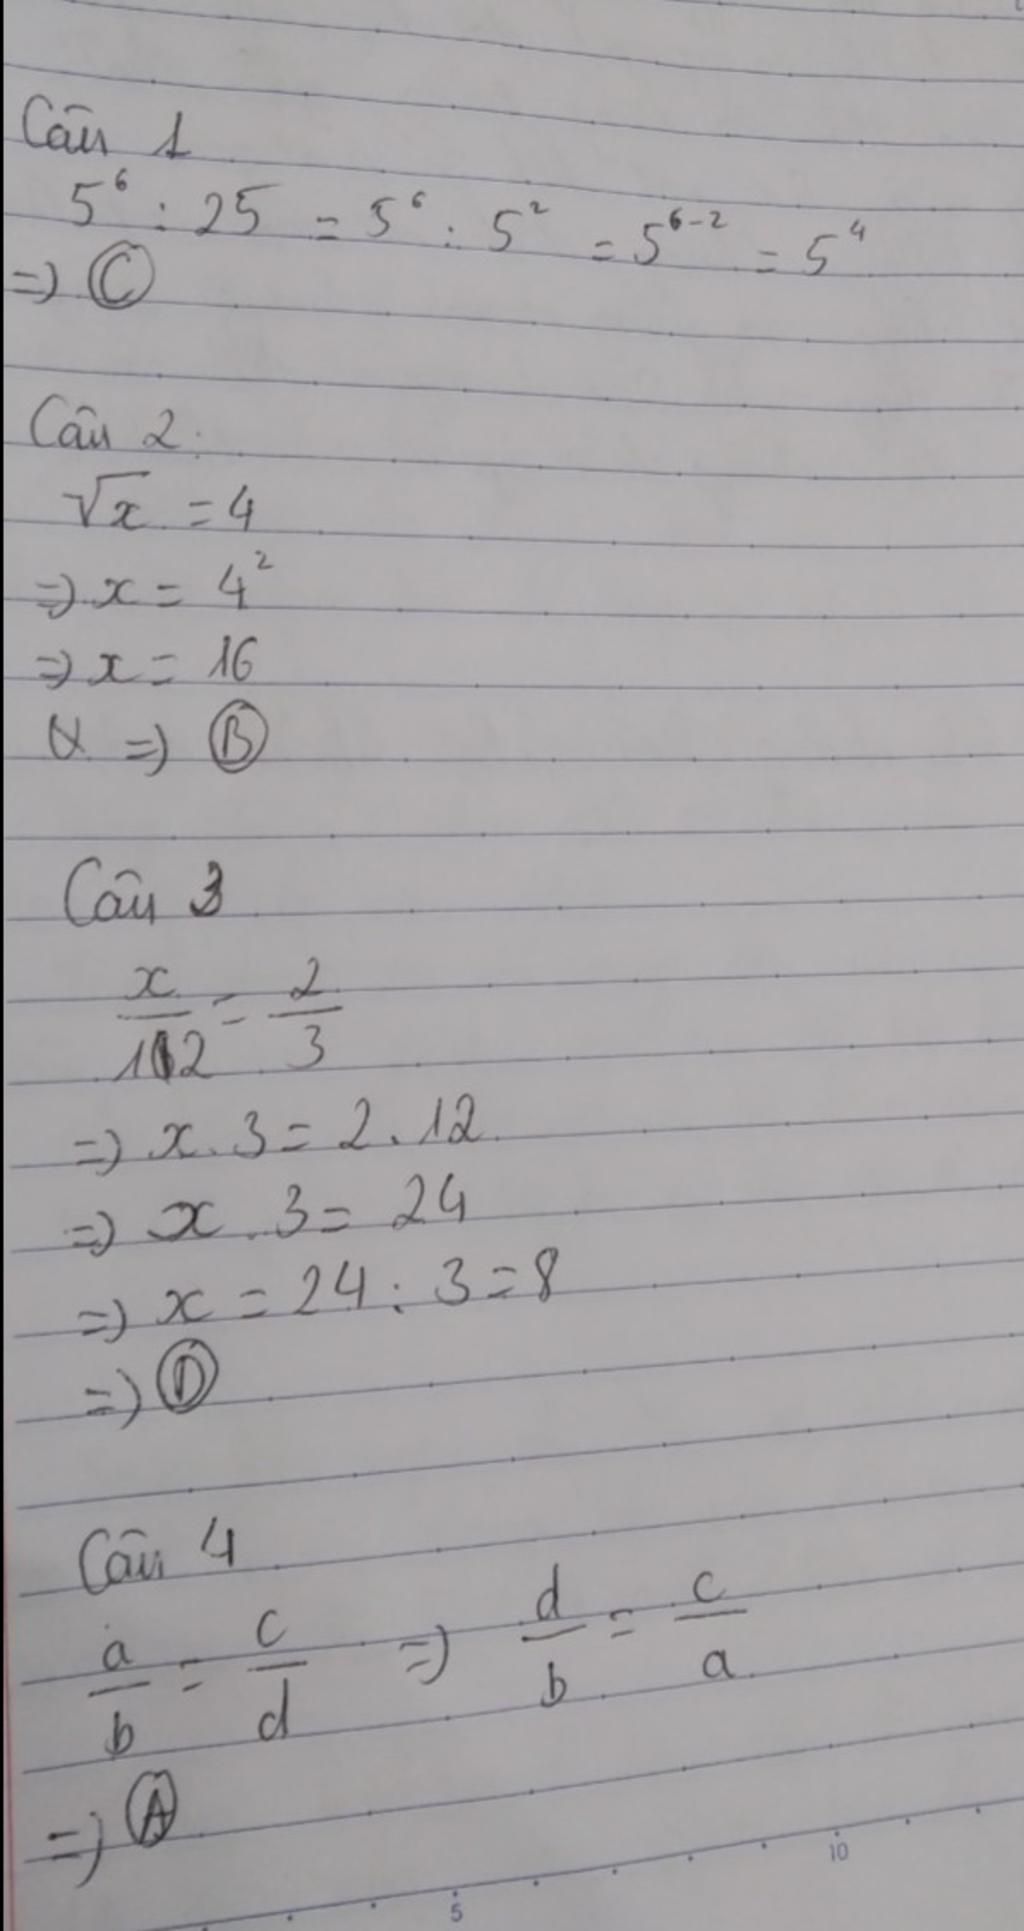 Câu 1
5⁶ : 25 = 5⁶ : 5² = 5⁶⁻² = 5⁴
=> C
Câu 2.
√x = 4
=> x = 4²
=> x = 16
=> B
Câu 3
x/12 = 2/3
=> x . 3 = 2 . 12
=> x . 3 = 24
=> x = 24 : 3 = 8
=> D
Câu 4
a/b = c/d => d/b = c/a
=> A
5 10